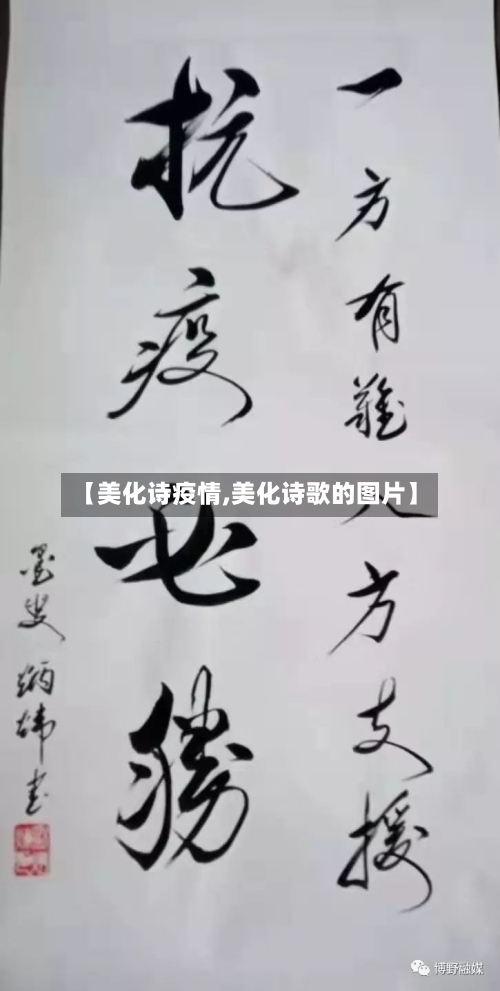 一方有難八方支援
抗疫必勝
墨叟炳韩书
【美化诗疫情,美化诗歌的图片】
博野融媒